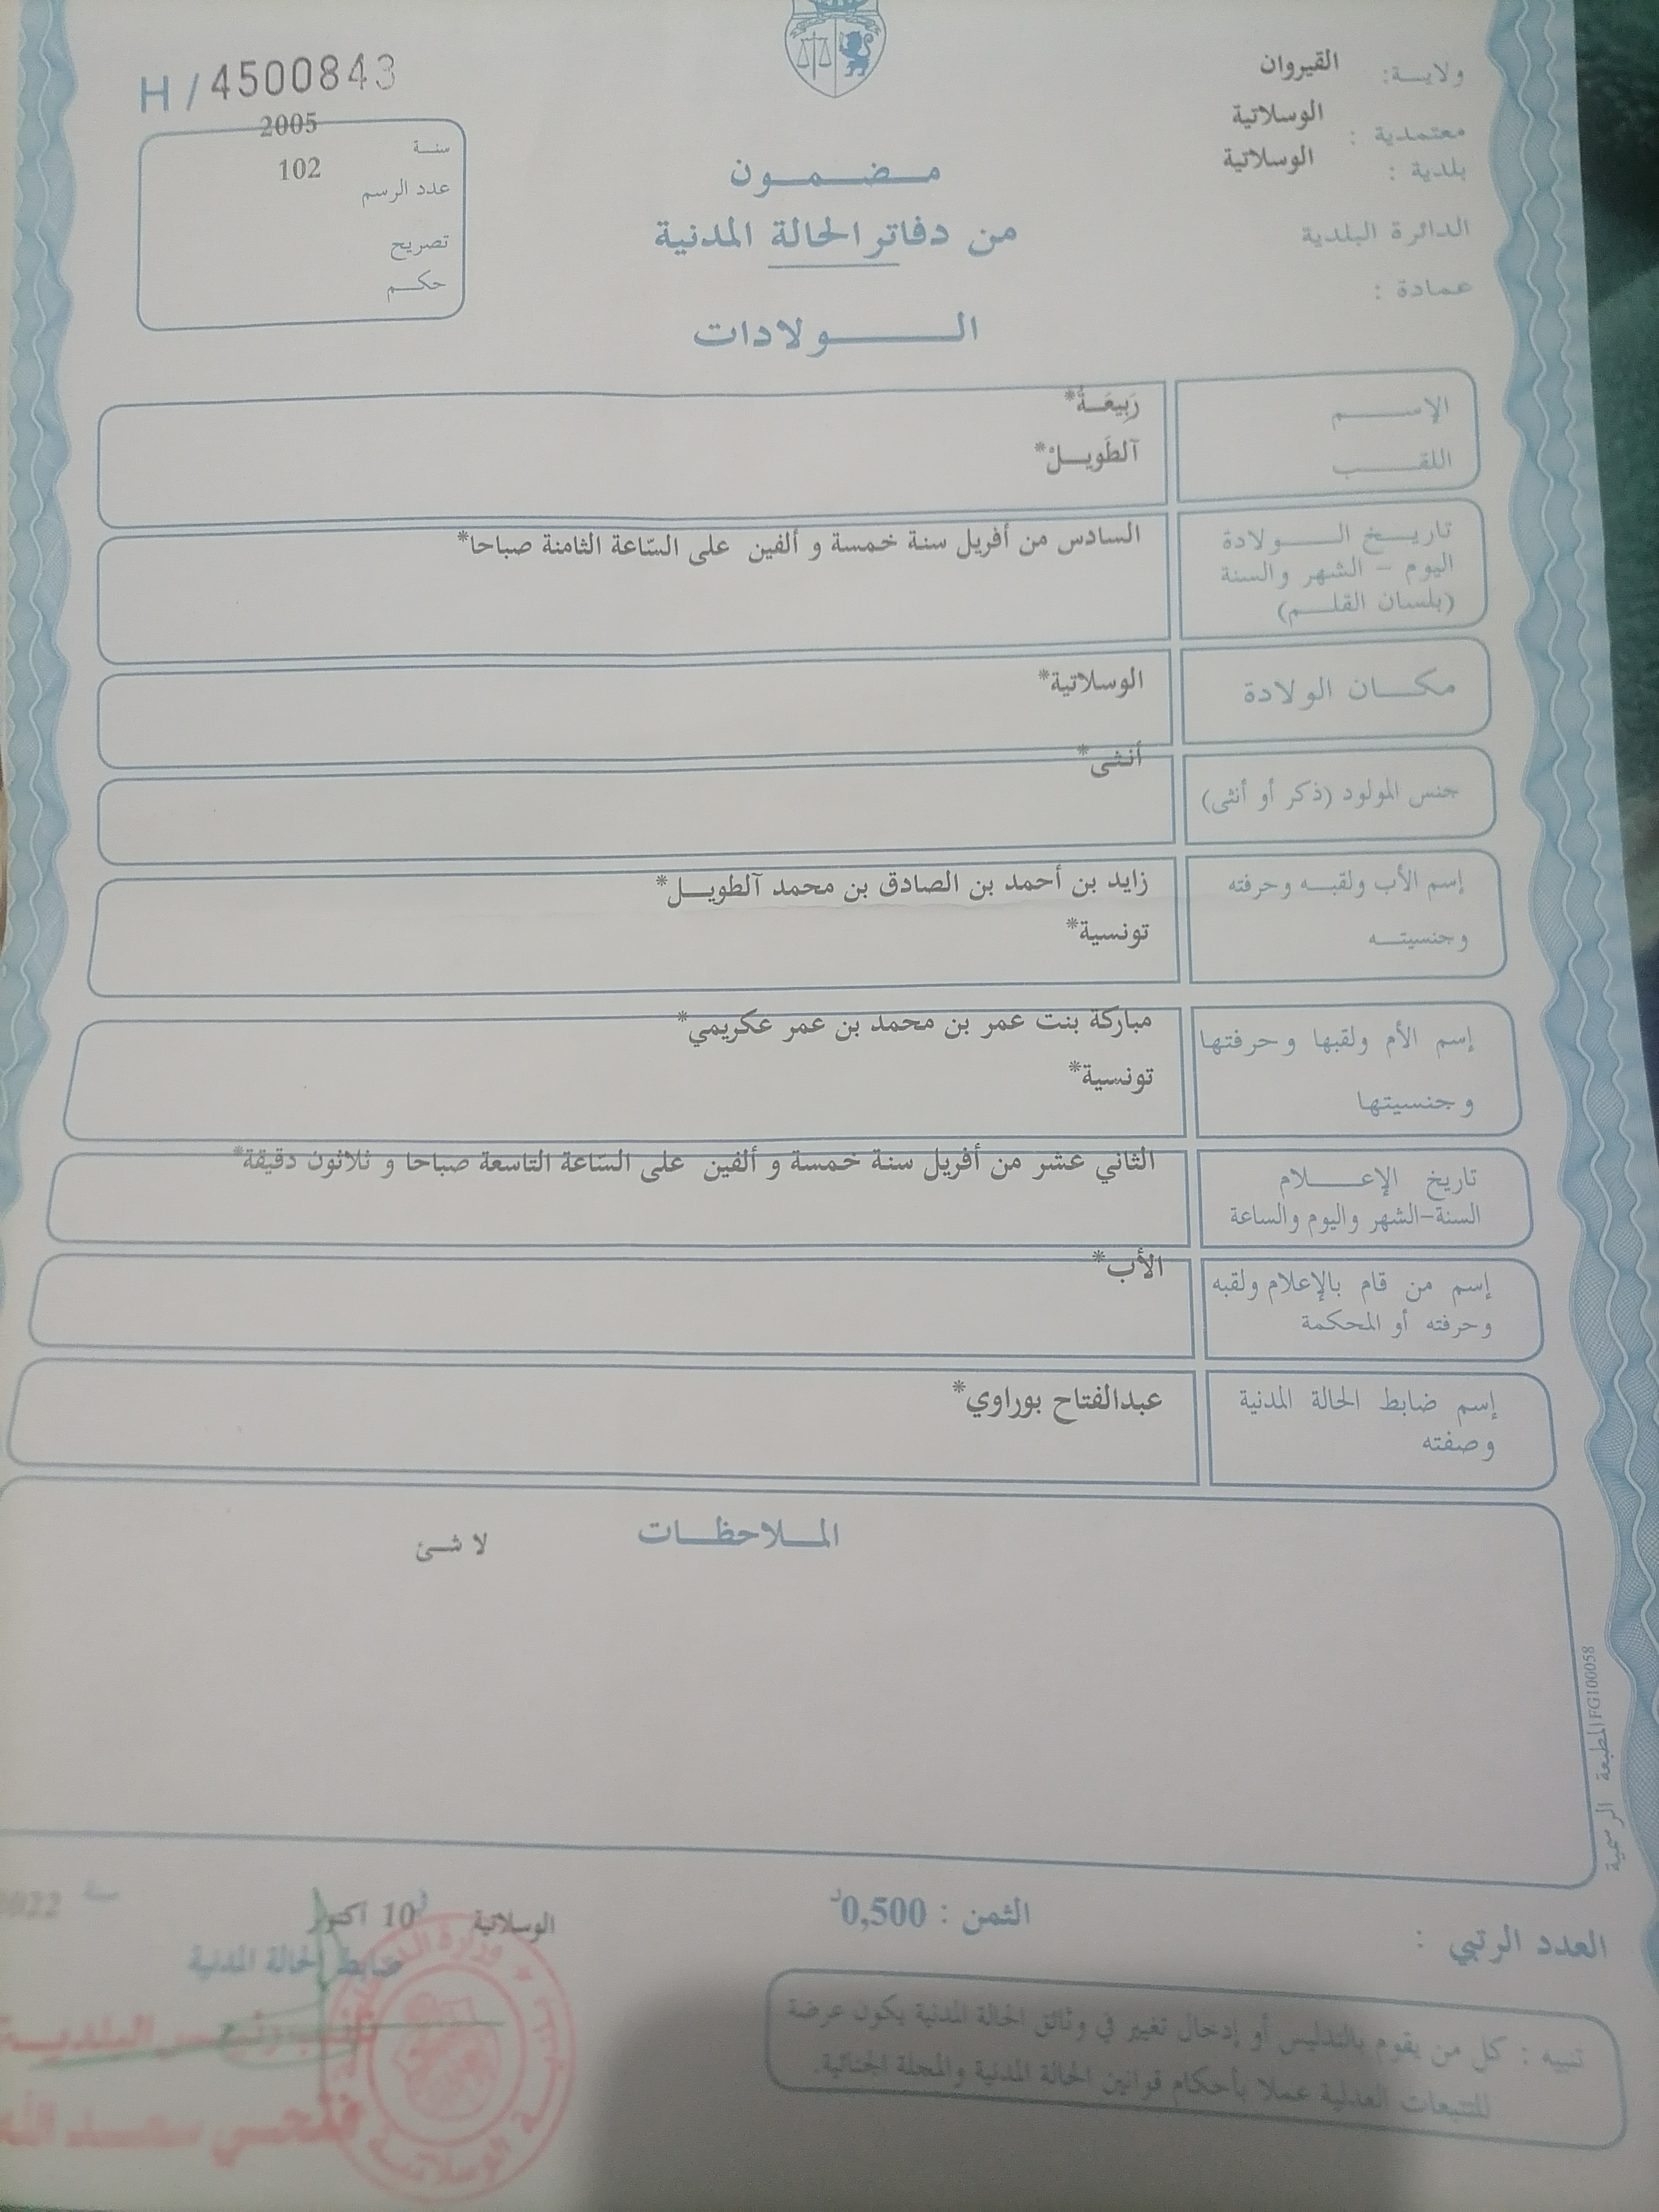 H / 4500843
ولاية: القيروان
معتمدية : الوسلاتية
بلدية : الوسلاتية
الدائرة البلدية
عمادة :
2005
سنة
102
عدد الرسم
تصريح
حكم
مضمون
من دفاتر الحالة المدنية
الولادات
الإسم
رَبِيعَة*
اللقب
آلطَويلْ*
تاريخ الولادة
اليوم - الشهر والسنة
(بلسان القلم)
السادس من أفريل سنة خمسة و ألفين على السّاعة الثامنة صباحا*
مكان الولادة
الوسلاتية*
جنس المولود (ذكر أو أنثى)
أنثى*
إسم الأب ولقبه وحرفته
وجنسيته
زايد بن أحمد بن الصادق بن محمد آلطويل*
تونسية*
إسم الأم ولقبها وحرفتها
وجنسيتها
مباركة بنت عمر بن محمد بن عمر عكريمي*
تونسية*
تاريخ الإعلام
السنة-الشهر واليوم والساعة
الثاني عشر من أفريل سنة خمسة و ألفين على السّاعة التاسعة صباحا و ثلاثون دقيقة*
إسم من قام بالإعلام ولقبه
وحرفته أو المحكمة
الأب*
إسم ضابط الحالة المدنية
وصفته
عبدالفتاح بوراوي*
الملاحظات
لا شئ
المطبعة الرسمية FG100058
العدد الرتبي :
الثمن : 0,500د
الوسلاتية في 10 أكتوبر سنة 2022
ضابط الحالة المدنية
نائب رئيس البلدية
فتحي سعد الله
تنبيه : كل من يقوم بالتدليس أو إدخال تغيير في وثائق الحالة المدنية يكون عرضة
للتتبعات العدلية عملا بأحكام قوانين الحالة المدنية والمجلة الجنائية.